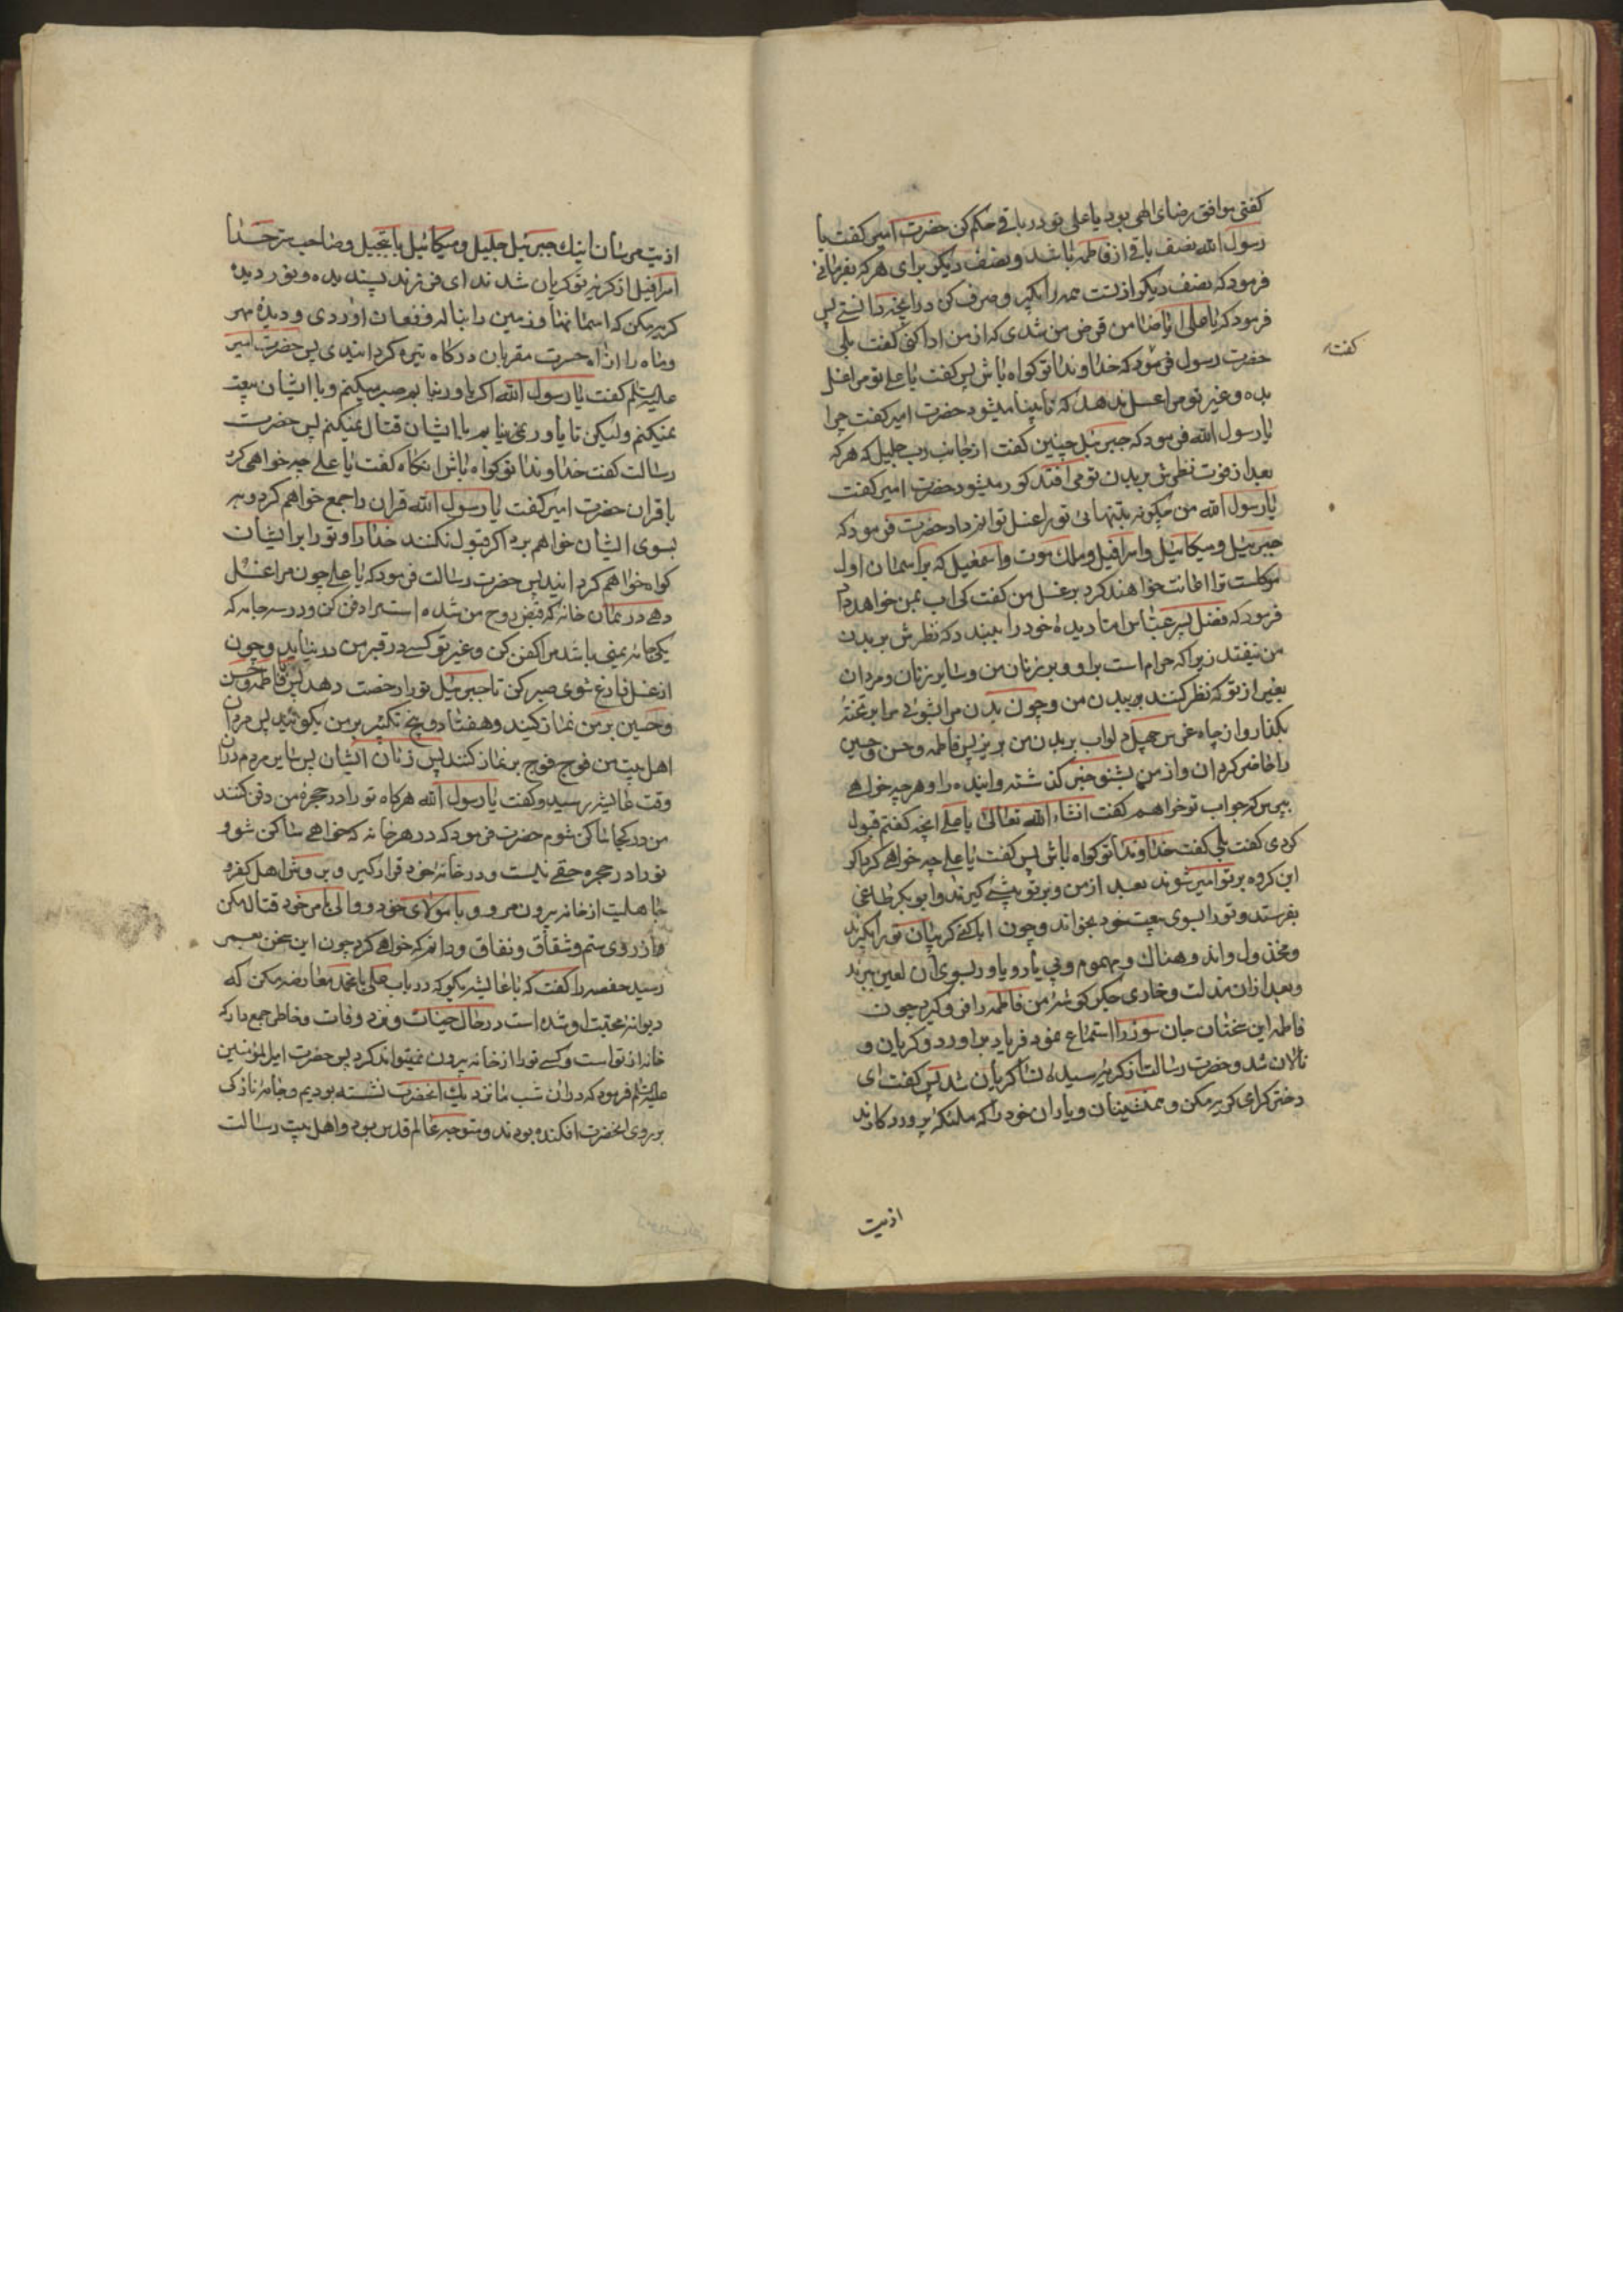 کفتی موافق رضای الهی بود یا علی تو در باقی حکم کن حضرت امیر کفت یا
رسول الله نصف باقی از فاطمه باشد و نصف دیکر برای هر که بفرمائی
فرمود که نصف دیکر از تست همه را بکیر و صرف کن در انچه دانستی پس
فرمود که یا علی ایا ضامن قرض من شدی که از من ادا کنی کفت بلی
کفته
حضرت رسول فرمود که خداوندا تو کواه باش پس کفت یا علی تو مرا غسل
بده و غیر تو مرا غسل ندهد که نابینا میشود حضرت امیر کفت چرا
یا رسول الله فرمود که جبرئیل چنین کفت از جانب رب جلیل که هر که
بعد از فوت نظرش بر بدن تو می افتد کور میشود حضرت امیر کفت
یا رسول الله من چکونه بتنهائی تو را غسل توانم داد حضرت فرمود که
جبرئیل و میکائیل و اسرافیل و ملك موت و اسمعیل که بر اسمان اول
موکلست ترا اعانت خواهند کرد بر غسل من کفت کی اب بمن خواهد داد
فرمود که فضل پسر عباس اما دیده خود را ببندد که نظرش بر بدن
من نیفتد زیرا که حرام است بر او و بر زنان من و سایر زنان و مردان
بغیر از تو که نظر کنند بر بدن من و چون بدن مرا بشوئی مرا بر تخته
بکذار و از چاه غرس چهل دلو اب بر بدن من بریز پس فاطمه و حسن و حسین
را حاضر کردان و از من بشنو خبر کذشته و اینده را و هر چه خواهی
بپرس که جواب تو خواهم کفت انشاء الله تعالی یا علی انچه کفتم قبول
کردی کفت بلی کفت خداوندا تو کواه باش پس کفت یا علی چه خواهی کرد اکر
این کروه بر تو امیر شوند بعد از من و بر تو پیشی کیرند و ابوبکر طاغی
بفرستد و تو را بسوی بیعت خود بخواند و چون ابا کنی کریبان تو را بکیرند
و مخذول و اندوهناك و مهموم و بی یار و یاور بسوی ان لعین برند
و بعد از ان مذلت و خاری جکر کوشه من فاطمه را فرو کیرد چون
فاطمه این سخنان جان سوز را استماع نمود فریاد براورد و کریان و
نالان شد و حضرت رسالت از کریه سیده نسا کریان شد پس کفت ای
دختر کرامی کریه مکن و همنشینان و یاران خود را که ملئکه پروردکارند
اذیت
اذیت مرسان اینك جبرئیل جلیل و میکائیل با تبجیل و صاحب سر خدا
اسرافیل از کریه تو کریان شدند ای فرزند پسندیده و نور دیده
کریه مکن که اسمانها و زمین را بناله و فغان اوردی و دیده مهر
و ماه را از اه حسرت مقربان درکاه تیره کردانیدی پس حضرت امیر
علیه السلم کفت یا رسول الله اکر یاور نیابم صبر میکنم و با ایشان بیعت
نمیکنم ولیکن تا یاوری نیابم با ایشان قتال نمیکنم پس حضرت
رسالت کفت خداوندا تو کواه باش انکاه کفت یا علی چه خواهی کرد
با قران حضرت امیر کفت یا رسول الله قران را جمع خواهم کرد و به
بسوی ایشان خواهم برد اکر قبول نکنند خدا را و تو را بر ایشان
کواه خواهم کردانید پس حضرت رسالت فرمود که یا علی چون مرا غسل
دهی در همان خانه که قبض روح من شده است مرا دفن کن و در سه جامه که
یکی جامه یمنی باشد مرا کفن کن و غیر تو کسی در قبر من در نیاید و چون
از غسل فارغ شوی صبر کن تا جبرئیل تو را رخصت دهد پس تو و فاطمه و حسن
و حسین بر من نماز کنید و هفتاد و پنج تکبیر بر من بکوئید پس مردان
اهل بیت من فوج فوج بر نماز کنند پس زنان ایشان پس سایر مردم در ان
وقت عایشه رسید و کفت یا رسول الله هر کاه تو را در حجره من دفن کنند
من در کجا ساکن شوم حضرت فرمود که در هر خانه که خواهی ساکن شو و
تو را در حجره حقی نیست و در خانه خود قرار کیر و بروش اهل کفر و
جاهلیت از خانه بیرون مرو و با مولای خود و والی امر خود قتال مکن
و از روی ستم و شقاق و نفاق و دانم که خواهی کرد چون این سخن بعمر
رسید حفصه را کفت که با عایشه بکو که در باب علی با محمد معارضه مکن که
دیوانه محبت او شده است در حال حیات و نزد وفات و خاطر جمع دار که
خانه از تو است و کسی تو را از خانه بیرون نمیتواند کرد پس حضرت امیر المؤمنین
علیه السلم فرمود که در ان شب ما نزدیك انحضرت نشسته بودیم و جامه نازک
بر روی انحضرت افکنده بودند و متوجه عالم قدس بود و اهل بیت رسالت